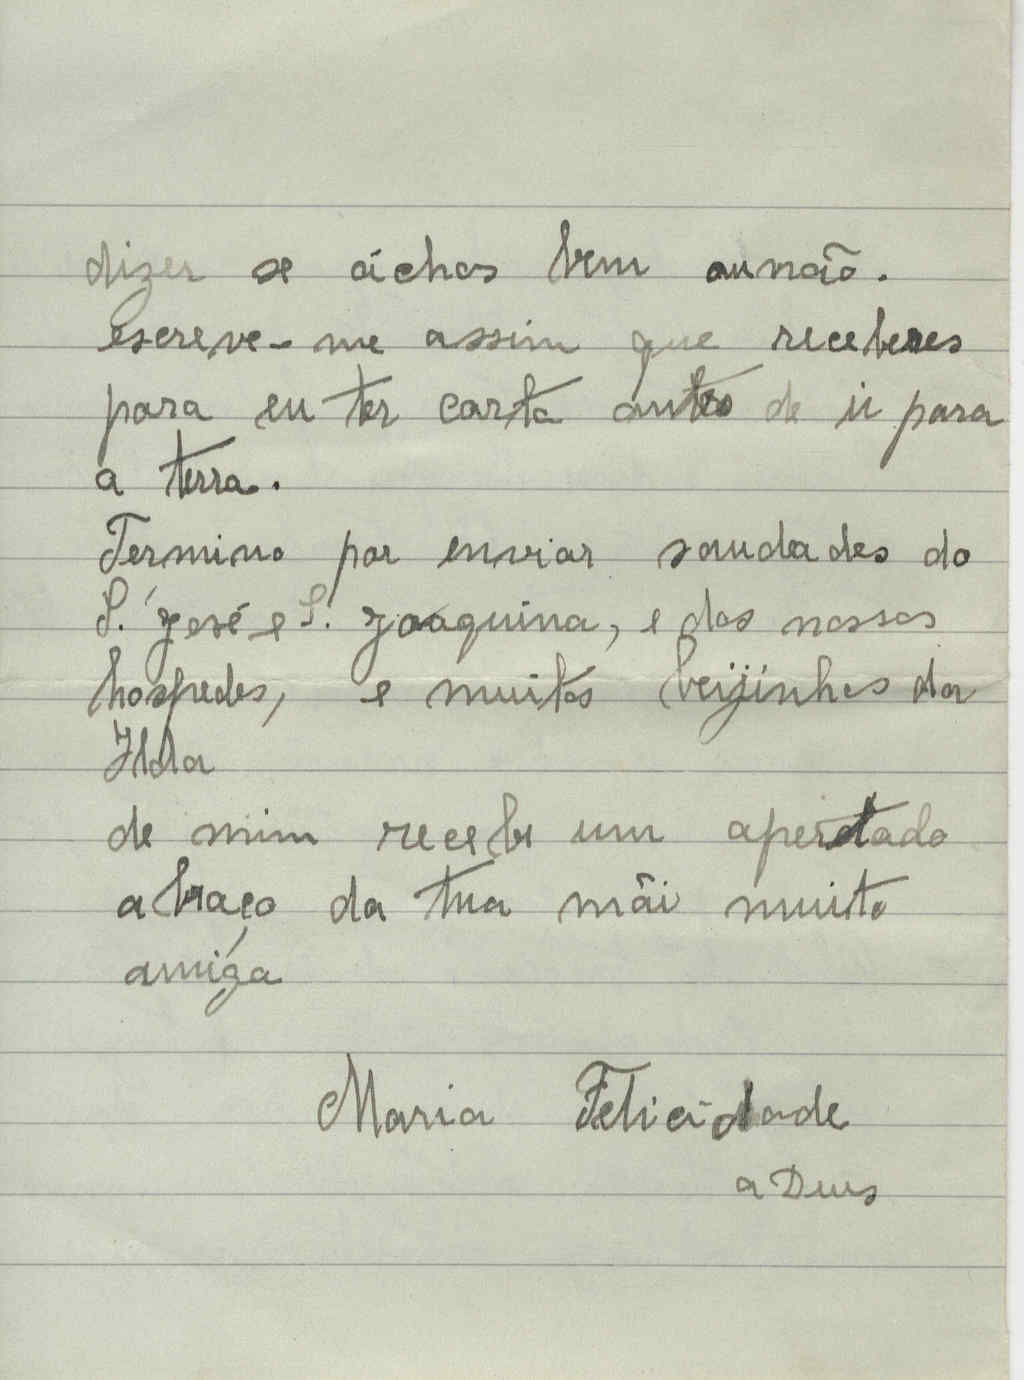 dizer se áchas bem ou não.
escreve-me assim que receberes
para eu ter carta antes de ir para
a terra.
Termino por enviar saudades do
S. José e S. Joaquina, e dos nossos
hospedes, e muitos beijinhos da
Ilda
de mim recebe um apertado
abraço da tua mãi muito
amiga
Maria Felicidade
a Deus